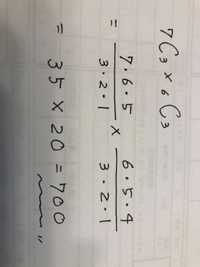 ₇C₃ × ₆C₃
= 7・6・5 / 3・2・1 × 6・5・4 / 3・2・1
= 35 × 20 = 700